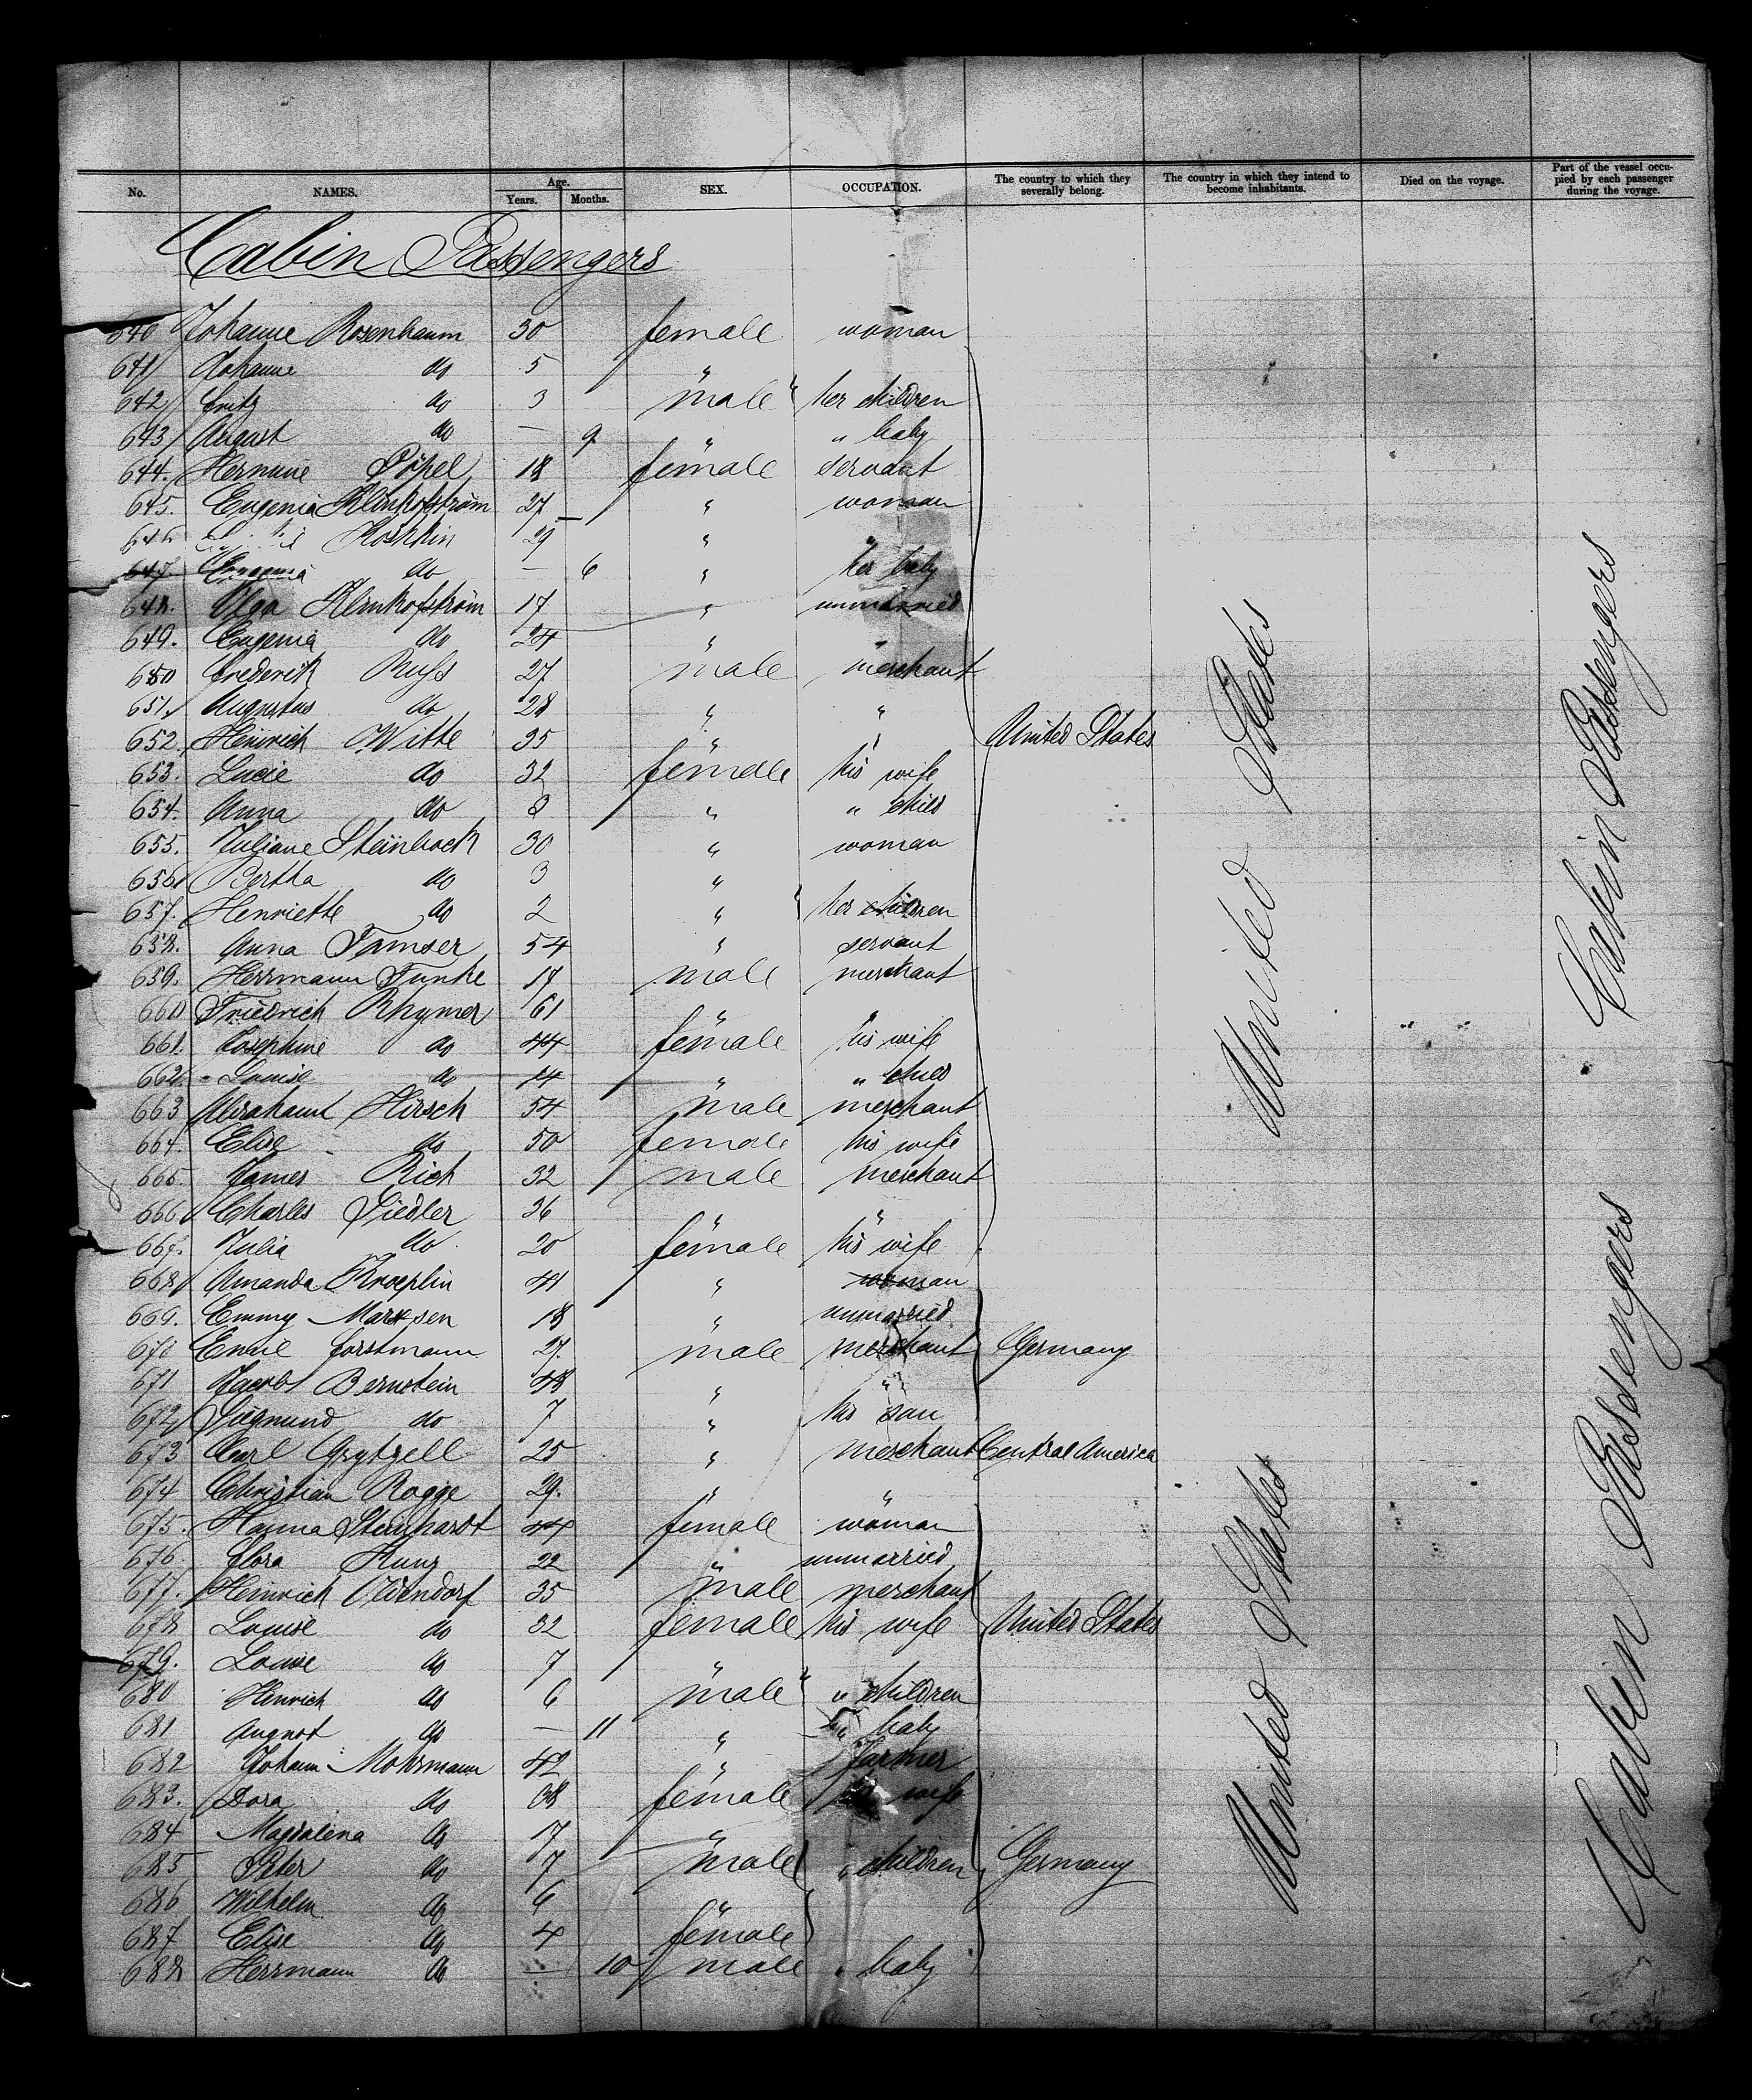 No. NAMES. Age. Years. Months. SEX. OCCUPATION. The country to which they severally belong. The country in which they intend to become inhabitants. Died on the voyage. Part of the vessel occupied by each passenger during the voyage.
Cabin Passengers
640 Johanne Rosenbaum 30 female woman
641 Johanne do 5 "
642 Fritz do 3 male " her children
643 August do — 9 " " baby
644. Hermine Pöpel 18 female servant
645. Eugenia Klinkofström 27 " woman
646 Koshkin 29 " "
647 do — 6 " her baby
648. Olga Klinkofström 17 " unmarried
649. Eugenia do 24 " "
650 Frederik Russ 27 male merchant
651. Augustus do 28 " "
652 Heinrich Witte 35 " " United States
653. Lucie do 32 female his wife
654. Anna do 3 " " child
655. Juliane Steinbock 30 " woman
656 Bertha do 3 "
657. Henriette do 2 " her children
658. Anna Tamser 54 " servant
659. Herrmann Funke 17 male merchant
660 Friedrich Rhymer 61 " "
661. Josephine do 44 female his wife
662. Louise do 14 " " child
663 Abraham Hirsch 54 male merchant
664. Elise do 50 female his wife
665 James Rich 32 male merchant
666 Charles Siedler 36 " "
667. Julia do 20 female his wife
668 Amanda Kroeplin 41 " woman
669. Emmy Marxsen 18 " unmarried
670 Emil Forstmann 27. male merchant Germany
671 Jacob Bernstein 48 " "
672 Siegmund do 7 " his son
673 Carl Grytzell 25 " merchant Central America
674 Christian Rogge 29. " "
675. Hanna Steinhardt 44 female woman
676. Flora Kunz 22 " unmarried
677. Heinrich Ovendorf 35 male merchant
678 Louise do 32 female his wife United States
679. Louise do 7 "
680 Hinrich do 6 male " " children
681 August do — 11 " " baby
682 Johann Mohrmann 42 " farmer
683. Dora do 38 female his wife
684 Magdalena do 17 "
685 Peter do 7 male " children Germany
686 Wilhelm do 6 "
687 Elise do 4 female
688 Herrmann do — 10 male " baby
United States
United States
Cabin Passengers
Cabin Passengers